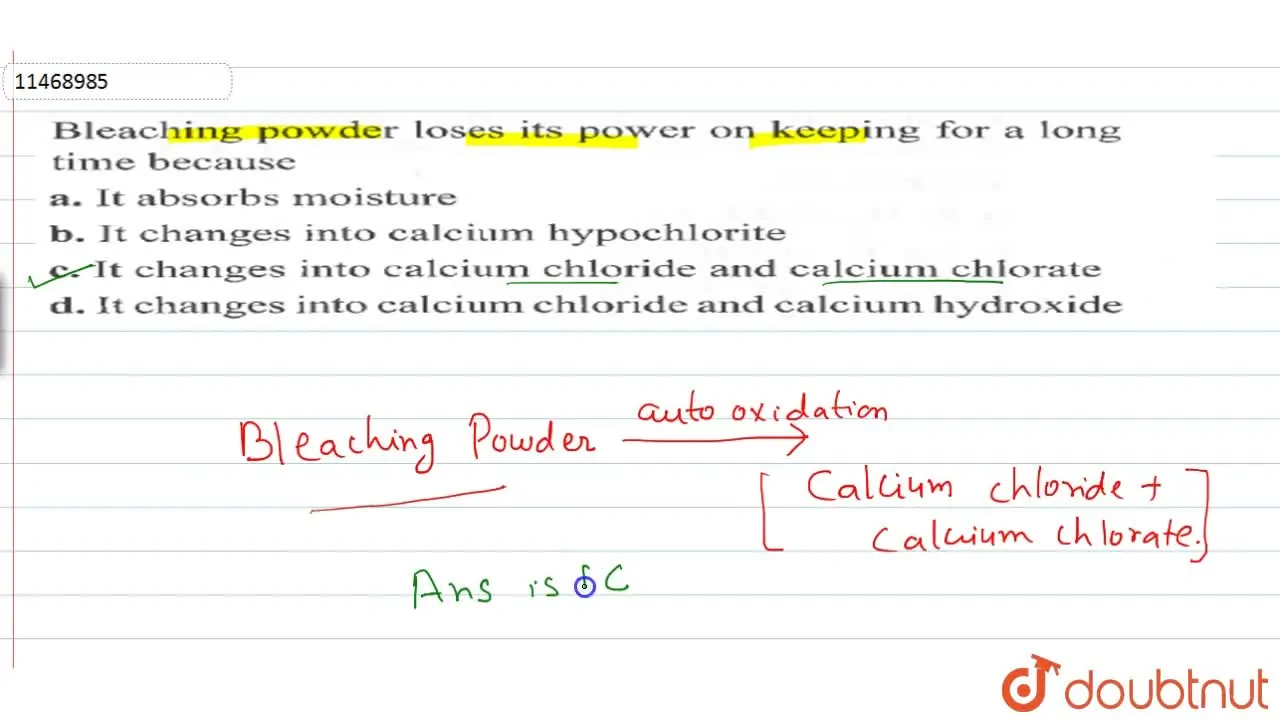 11468985
Bleaching powder loses its power on keeping for a long
time because
a. It absorbs moisture
b. It changes into calcium hypochlorite
c. It changes into calcium chloride and calcium chlorate
d. It changes into calcium chloride and calcium hydroxide
auto oxidation
Bleaching Powder
[ Calcium chloride +
Calcium chlorate. ]
Ans is C
doubtnut